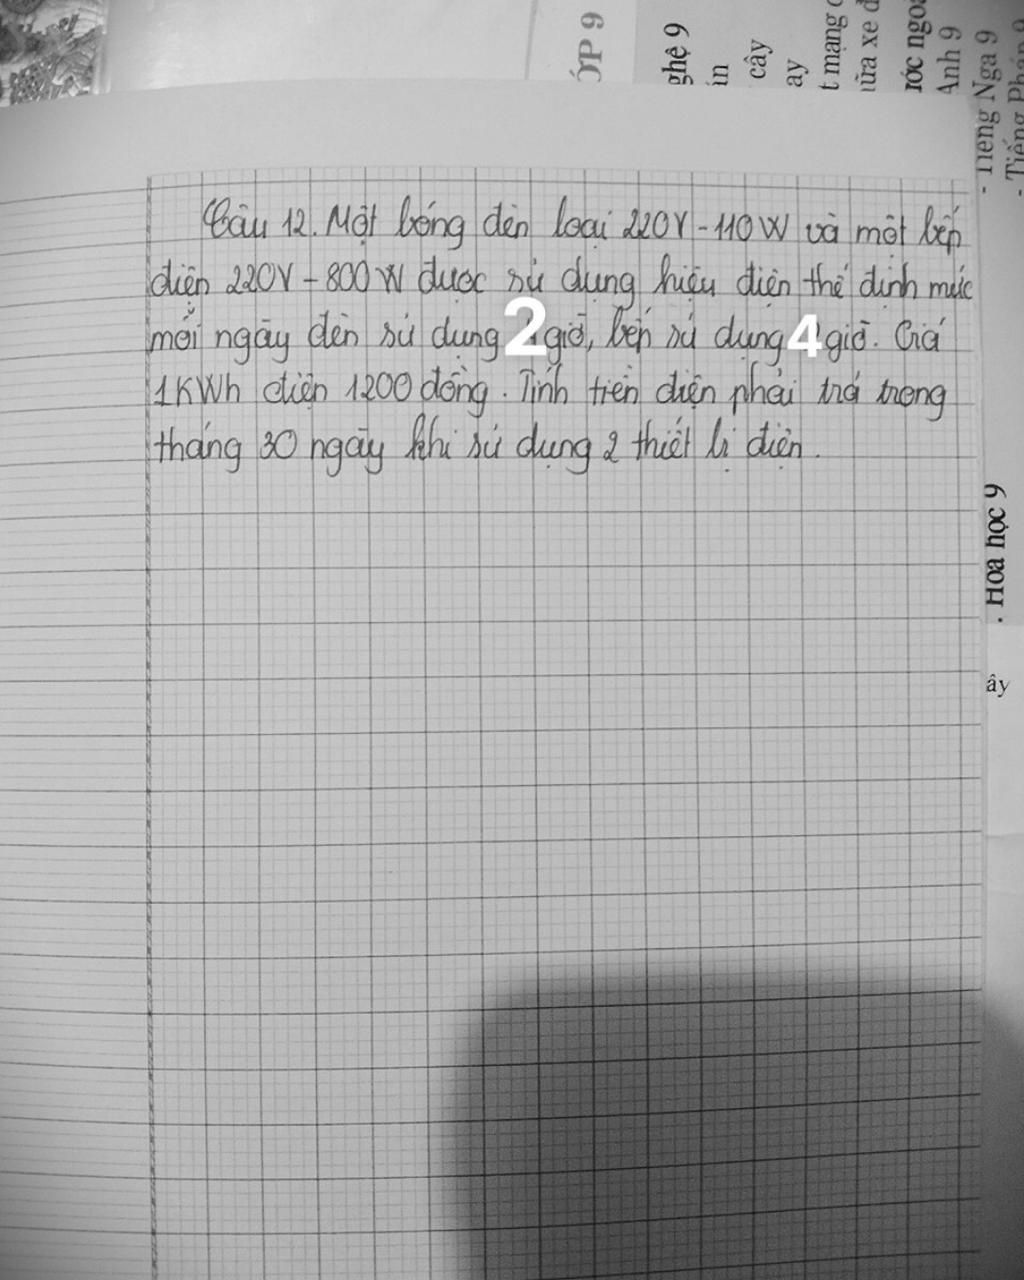 ỚP 9
ghệ 9
in
cây
ay
t mạng
ửa xe đ
ước ngoà
Anh 9
- Tiếng Nga 9
- Tiếng Pháp 9
Câu 12. Một bóng đèn loại 220V - 110W và một bếp
điện 220V - 800W được sử dụng hiệu điện thế định mức
mỗi ngày đèn sử dụng 2 giờ, bếp sử dụng 4 giờ. Giá
1KWh điện 1200 đồng. Tính tiền điện phải trả trong
tháng 30 ngày khi sử dụng 2 thiết bị điện.
. Hóa học 9
ây